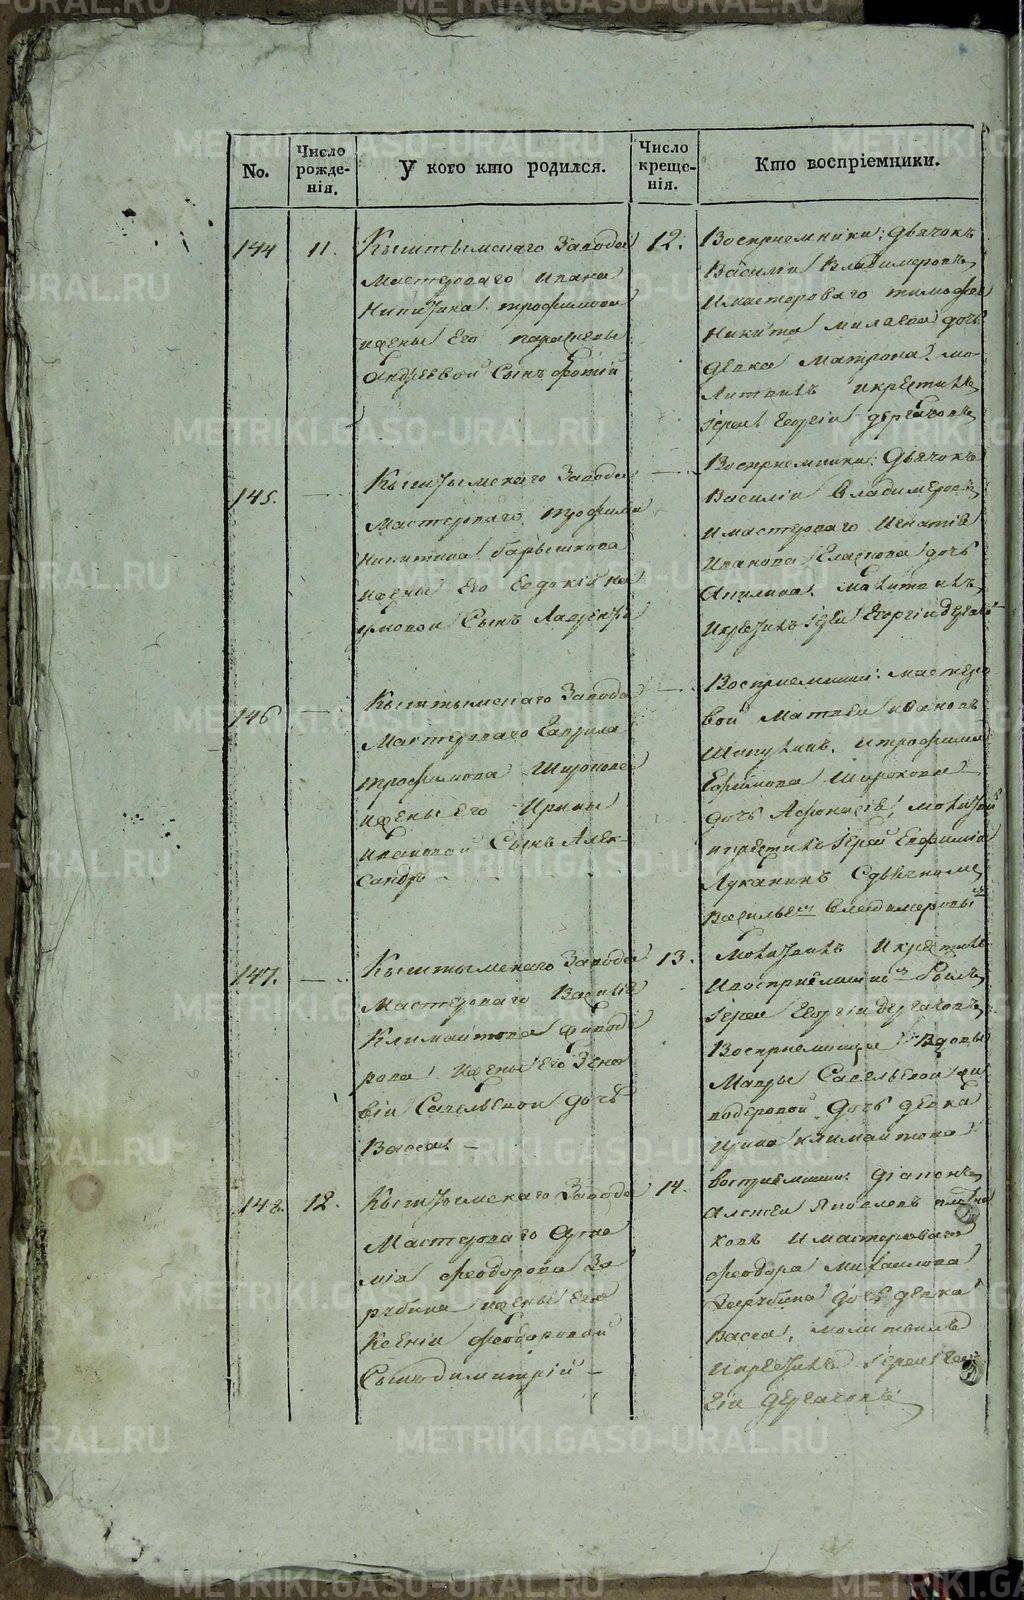 No.
Число рожденія.
У кого кто родился.
Число крещенія.
Кто воспріемники.
144
11.
Кыштымскаго Завода
мастероваго Ивана
Никитина трофимова
ижены Его парасковы
андреевой Сынъ фотій
12.
Восприемники: Дьячокъ
Василіи Владимеровъ
имастероваго тимофея
Никита дочь
девка Матрона. мо-
литвилъ икрестилъ
іереи Георгіи дергачовъ
145.
—
Кыштымскаго Завода
Мастероваго трофима
никитина барышкова
ижены Его Евдокіи на
умовой Сынъ Лаврентіи
—
Восприемники: Дьячокъ
Василіи Владимеровъ
имастероваго Игнатія
Иванова дочь
Акилина. молитвилъ
икрестилъ Іереи Георгіи дергачо
146
—
Кыштымскаго Завода
Мастероваго Гаврила
трофимова Широкова
ижены его Ирины
ивановой Сынъ Алек-
сандръ —
—
Восприемники: мастеро
вой Матвеи ивановъ
итрофима
Ефимова Широкова
дочь молитвилъ
икрестилъ Іереи Евфимій
Луканинъ Сдьячкомъ
Васильемъ Владимеровымъ
147.
—
Кыштымскаго Завода
Мастероваго Василія
Климантова
ижены Его Зено
віи Савельевои дочь
Васса —
13.
Молитвилъ икрестилъ
ивосприемникомъ былъ
іереи Георгіи дергачовъ
Восприемница Вдовы
Мавры Савельевои
дочь девка
Ирина климантова
148.
12.
Кыштымскаго Завода
Мастероваго Арте
мія феодорова За
рубина ижены Его
Ксеніи феодоровои
Сынъ димитріи —
14.
восприемники діаконъ
алексеи Яковлевъ плотни
ковъ имастероваго
феодора михаилова
Зарубина дочь девка
васса, молитвилъ
икрестилъ іереи Геор
гіи дергачовъ
METRIKI.GASO-URAL.RU